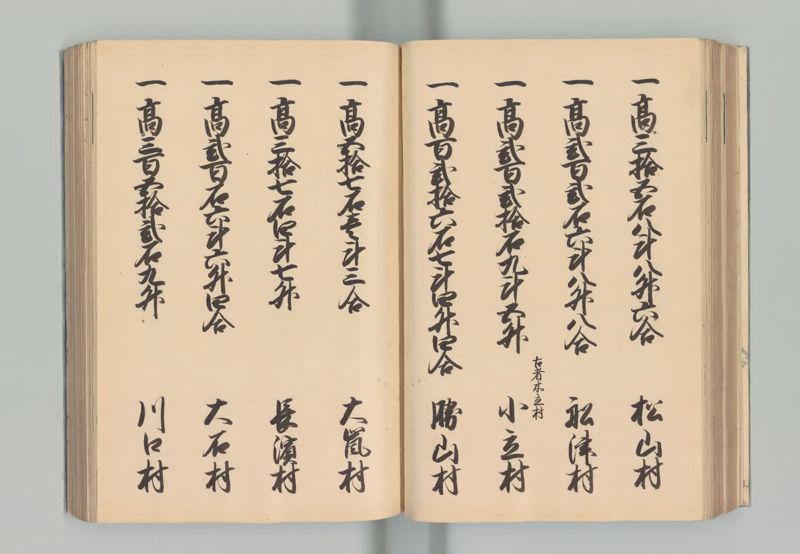 一高三拾五石八斗八升六合 松山村
一高弐百弐石六斗八升八合 舩津村
一高弐百弐拾石九斗五升 小立村
古者木立村
一高百弐拾六石七斗四升四合 勝山村
一高五拾七石壱斗三合 大嵐村
一高三拾七石四斗七升 長濱村
一高弐百石六斗六升四合 大石村
一高三百五拾弐石九升 川口村